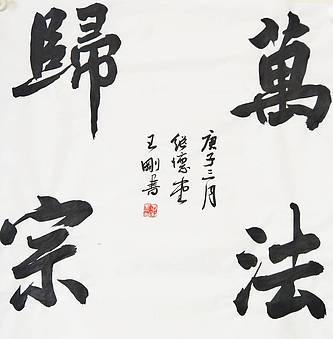 萬法
歸宗
庚子三月
德堂
王剛書